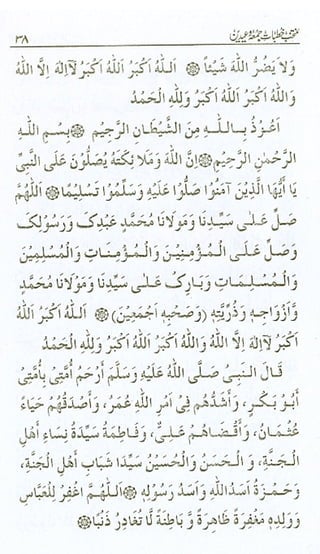 منتخب خطبات جمعہ و عیدین ٣٨
وَلَا يَضُرُّ اللّٰهَ شَيْئًا ۞ اَللّٰهُ اَكْبَرُ اَللّٰهُ اَكْبَرُ لَآ اِلٰهَ اِلَّا اللّٰهُ
وَاللّٰهُ اَكْبَرُ اَللّٰهُ اَكْبَرُ وَلِلّٰهِ الْحَمْدُ
اَعُوْذُ بِاللّٰهِ مِنَ الشَّيْطَانِ الرَّجِيْمِ ۞ بِسْمِ اللّٰهِ
الرَّحْمٰنِ الرَّحِيْمِ ۞ اِنَّ اللّٰهَ وَمَلَائِكَتَهٗ يُصَلُّوْنَ عَلَى النَّبِيِّ
يَا أَيُّهَا الَّذِيْنَ آمَنُوْا صَلُّوْا عَلَيْهِ وَسَلِّمُوْا تَسْلِيْمًا ۞ اَللّٰهُمَّ
صَلِّ عَلٰى سَيِّدِنَا وَمَوْلَانَا مُحَمَّدٍ عَبْدِكَ وَرَسُوْلِكَ
وَصَلِّ عَلَى الْمُؤْمِنِيْنَ وَالْمُؤْمِنَاتِ وَالْمُسْلِمِيْنَ
وَالْمُسْلِمَاتِ وَبَارِكْ عَلٰى سَيِّدِنَا وَمَوْلَانَا مُحَمَّدٍ
وَّاَزْوَاجِهٖ وَذُرِّيَّتِهٖ (وَصَحْبِهٖ اَجْمَعِيْنَ) ۞ اَللّٰهُ اَكْبَرُ اَللّٰهُ
اَكْبَرُ لَآ اِلٰهَ اِلَّا اللّٰهُ وَاللّٰهُ اَكْبَرُ اَللّٰهُ اَكْبَرُ وَلِلّٰهِ الْحَمْدُ
قَالَ النَّبِىُّ صَلَّى اللّٰهُ عَلَيْهِ وَسَلَّمَ اَرْحَمُ اُمَّتِىْ بِاُمَّتِىْ
اَبُوْ بَكْرٍ، وَاَشَدُّهُمْ فِىْ اَمْرِ اللّٰهِ عُمَرُ، وَاَصْدَقُهُمْ حَيَاءً
عُثْمَانُ، وَاَقْضَاهُمْ عَلِىٌّ، وَفَاطِمَةُ سَيِّدَةُ نِسَاءِ اَهْلِ
الْجَنَّةِ، وَ الْحَسَنُ وَالْحُسَيْنُ سَيِّدَا شَبَابِ اَهْلِ الْجَنَّةِ،
وَحَمْزَةُ اَسَدُ اللّٰهِ وَاَسَدُ رَسُوْلِهٖ ۞ اَللّٰهُمَّ اغْفِرْ لِلْعَبَّاسِ
وَوَلَدِهٖ مَغْفِرَةً ظَاهِرَةً وَّ بَاطِنَةً لَّا تُغَادِرُ ذَنْبًا ۞